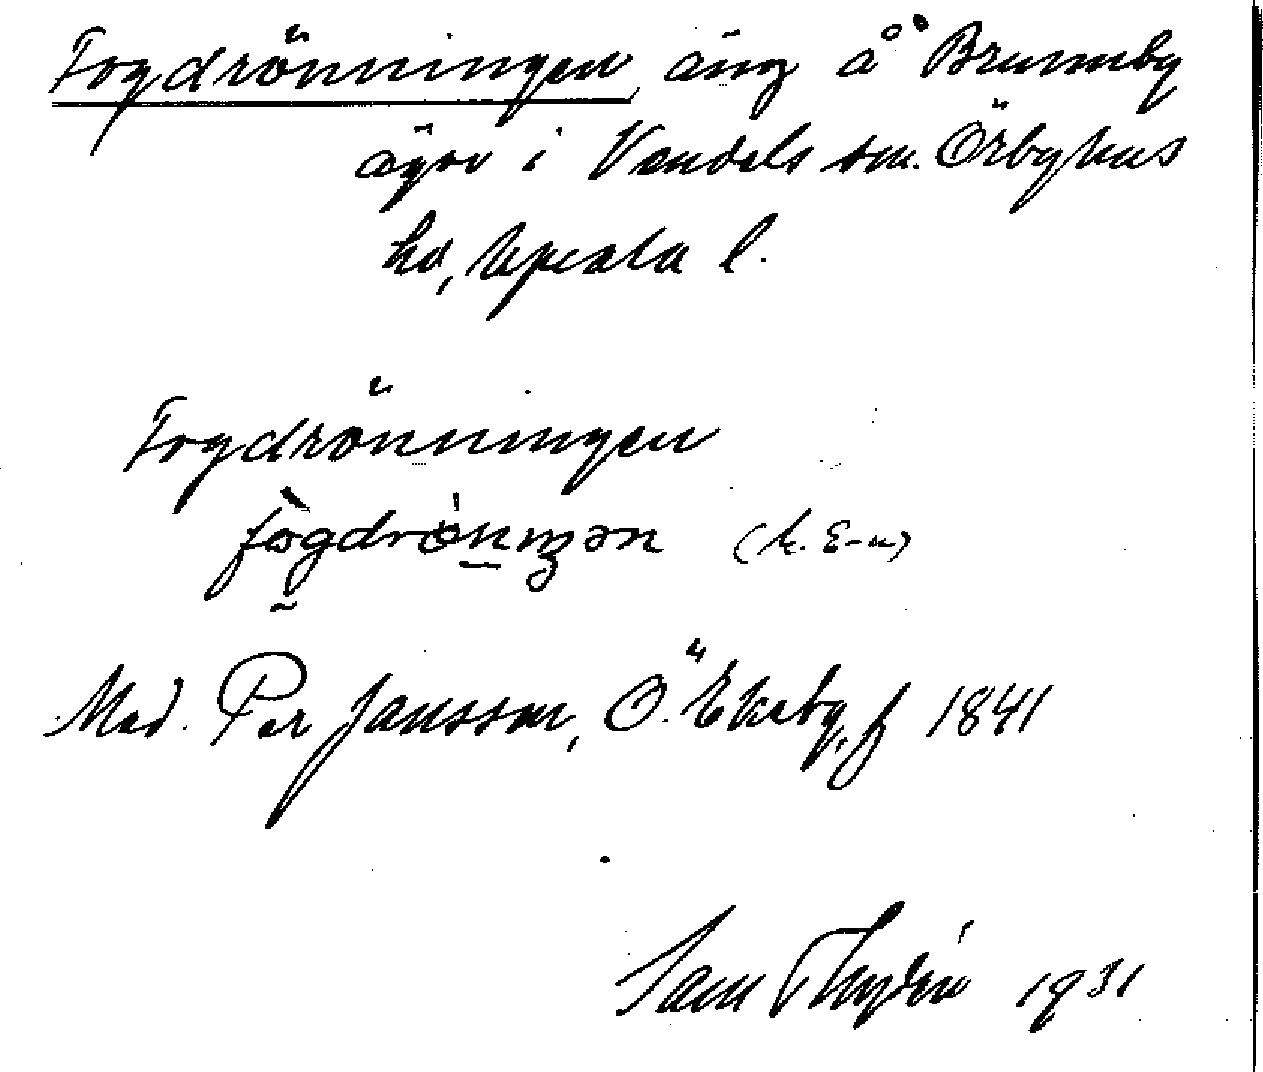 Fogdrönningen, äng å Brunnby
ägor i Vendels sn. Örbyhus
hd, Upsala l.
Fogdrönningen
Med. Per Jansson, Ö. Ekeby, f 1841
Sam Thydén 1931